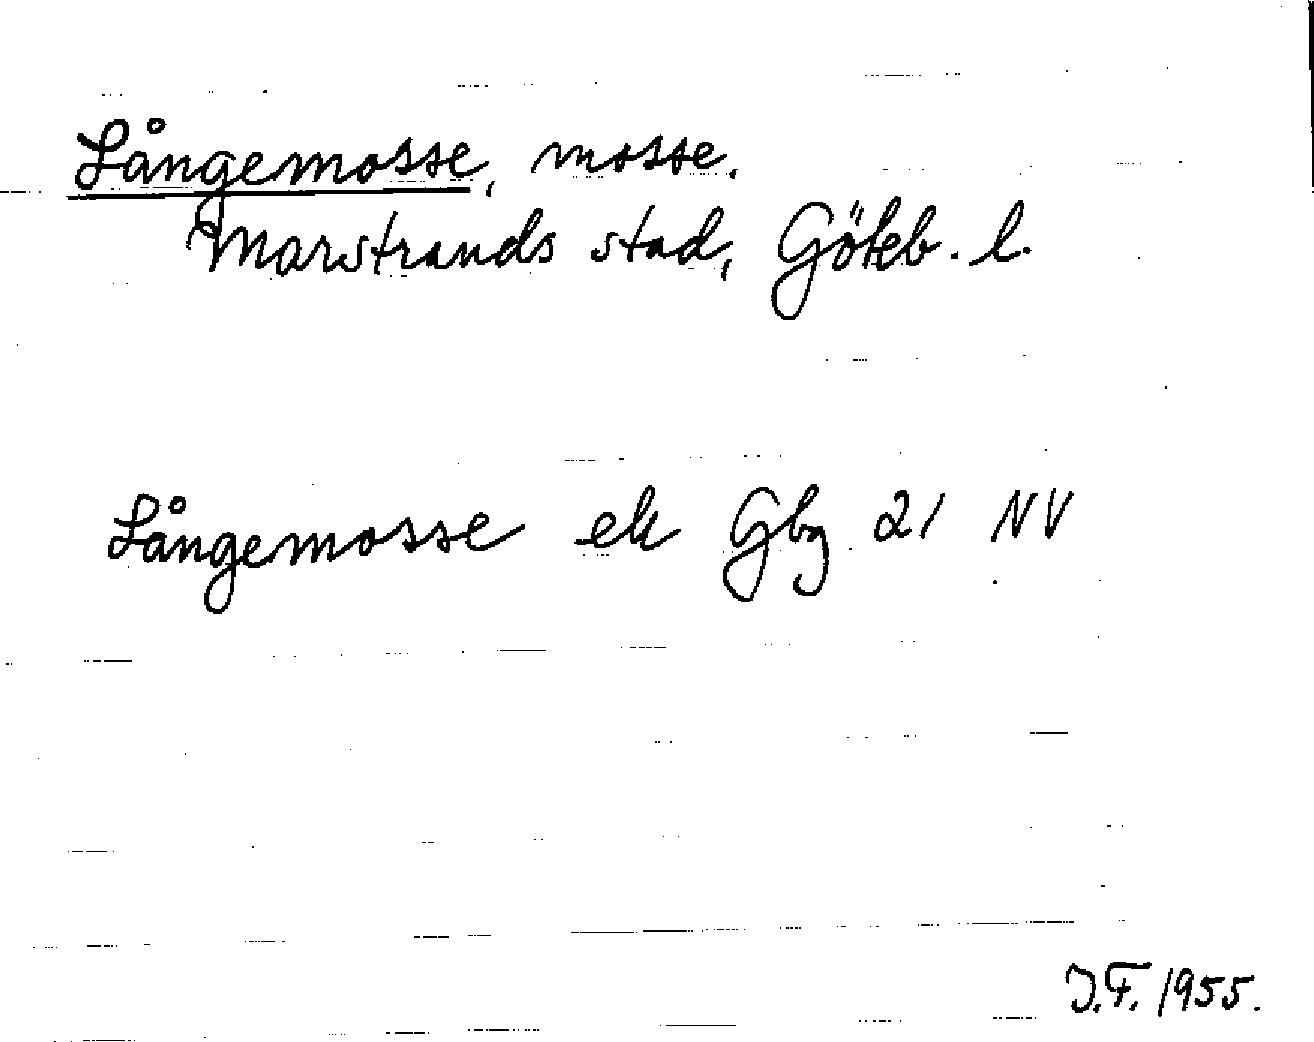 Långemosse, mosse.
Marstrands stad, Göteb. l.
Långemosse ek Gbg 21 NV
J.F. 1955.